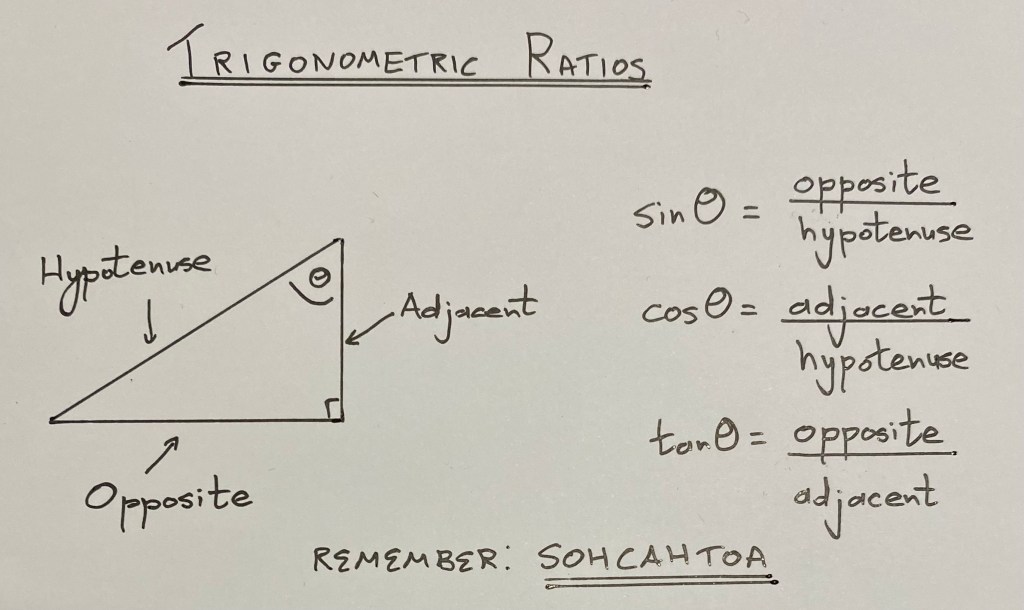 TRIGONOMETRIC RATIOS
Hypotenuse
θ
Adjacent
Opposite
sin θ = opposite / hypotenuse
cos θ = adjacent / hypotenuse
tan θ = opposite / adjacent
REMEMBER: SOHCAHTOA